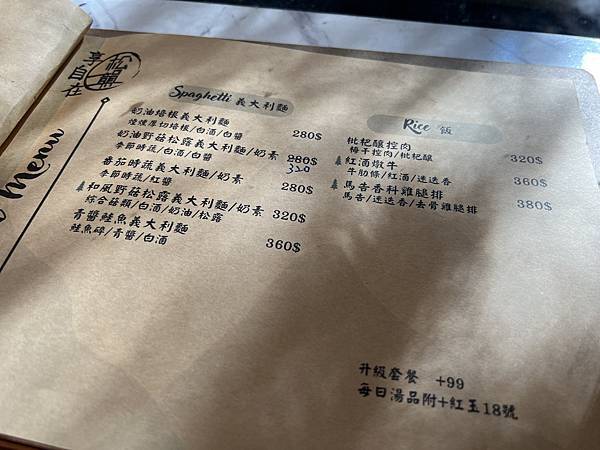 享自在
Menu
Spaghetti 義大利麵
奶油培根義大利麵 280$
煙燻厚切培根/白酒/白醬
奶油野菇松露義大利麵/奶素 280$
320
季節時蔬/白酒/白醬
番茄時蔬義大利麵/奶素 280$
季節時蔬/紅醬
和風野菇松露義大利麵/奶素 320$
綜合菇類/白酒/奶油/松露
青醬鮭魚義大利麵 360$
鮭魚碎/青醬/白酒
Rice 飯
枇杷釀控肉 320$
梅干控肉/枇杷釀
紅酒燉牛 360$
牛肋條/紅酒/迷迭香
馬告香料雞腿排 380$
馬告/迷迭香/去骨雞腿排
升級套餐 +99
每日湯品附+紅玉18號